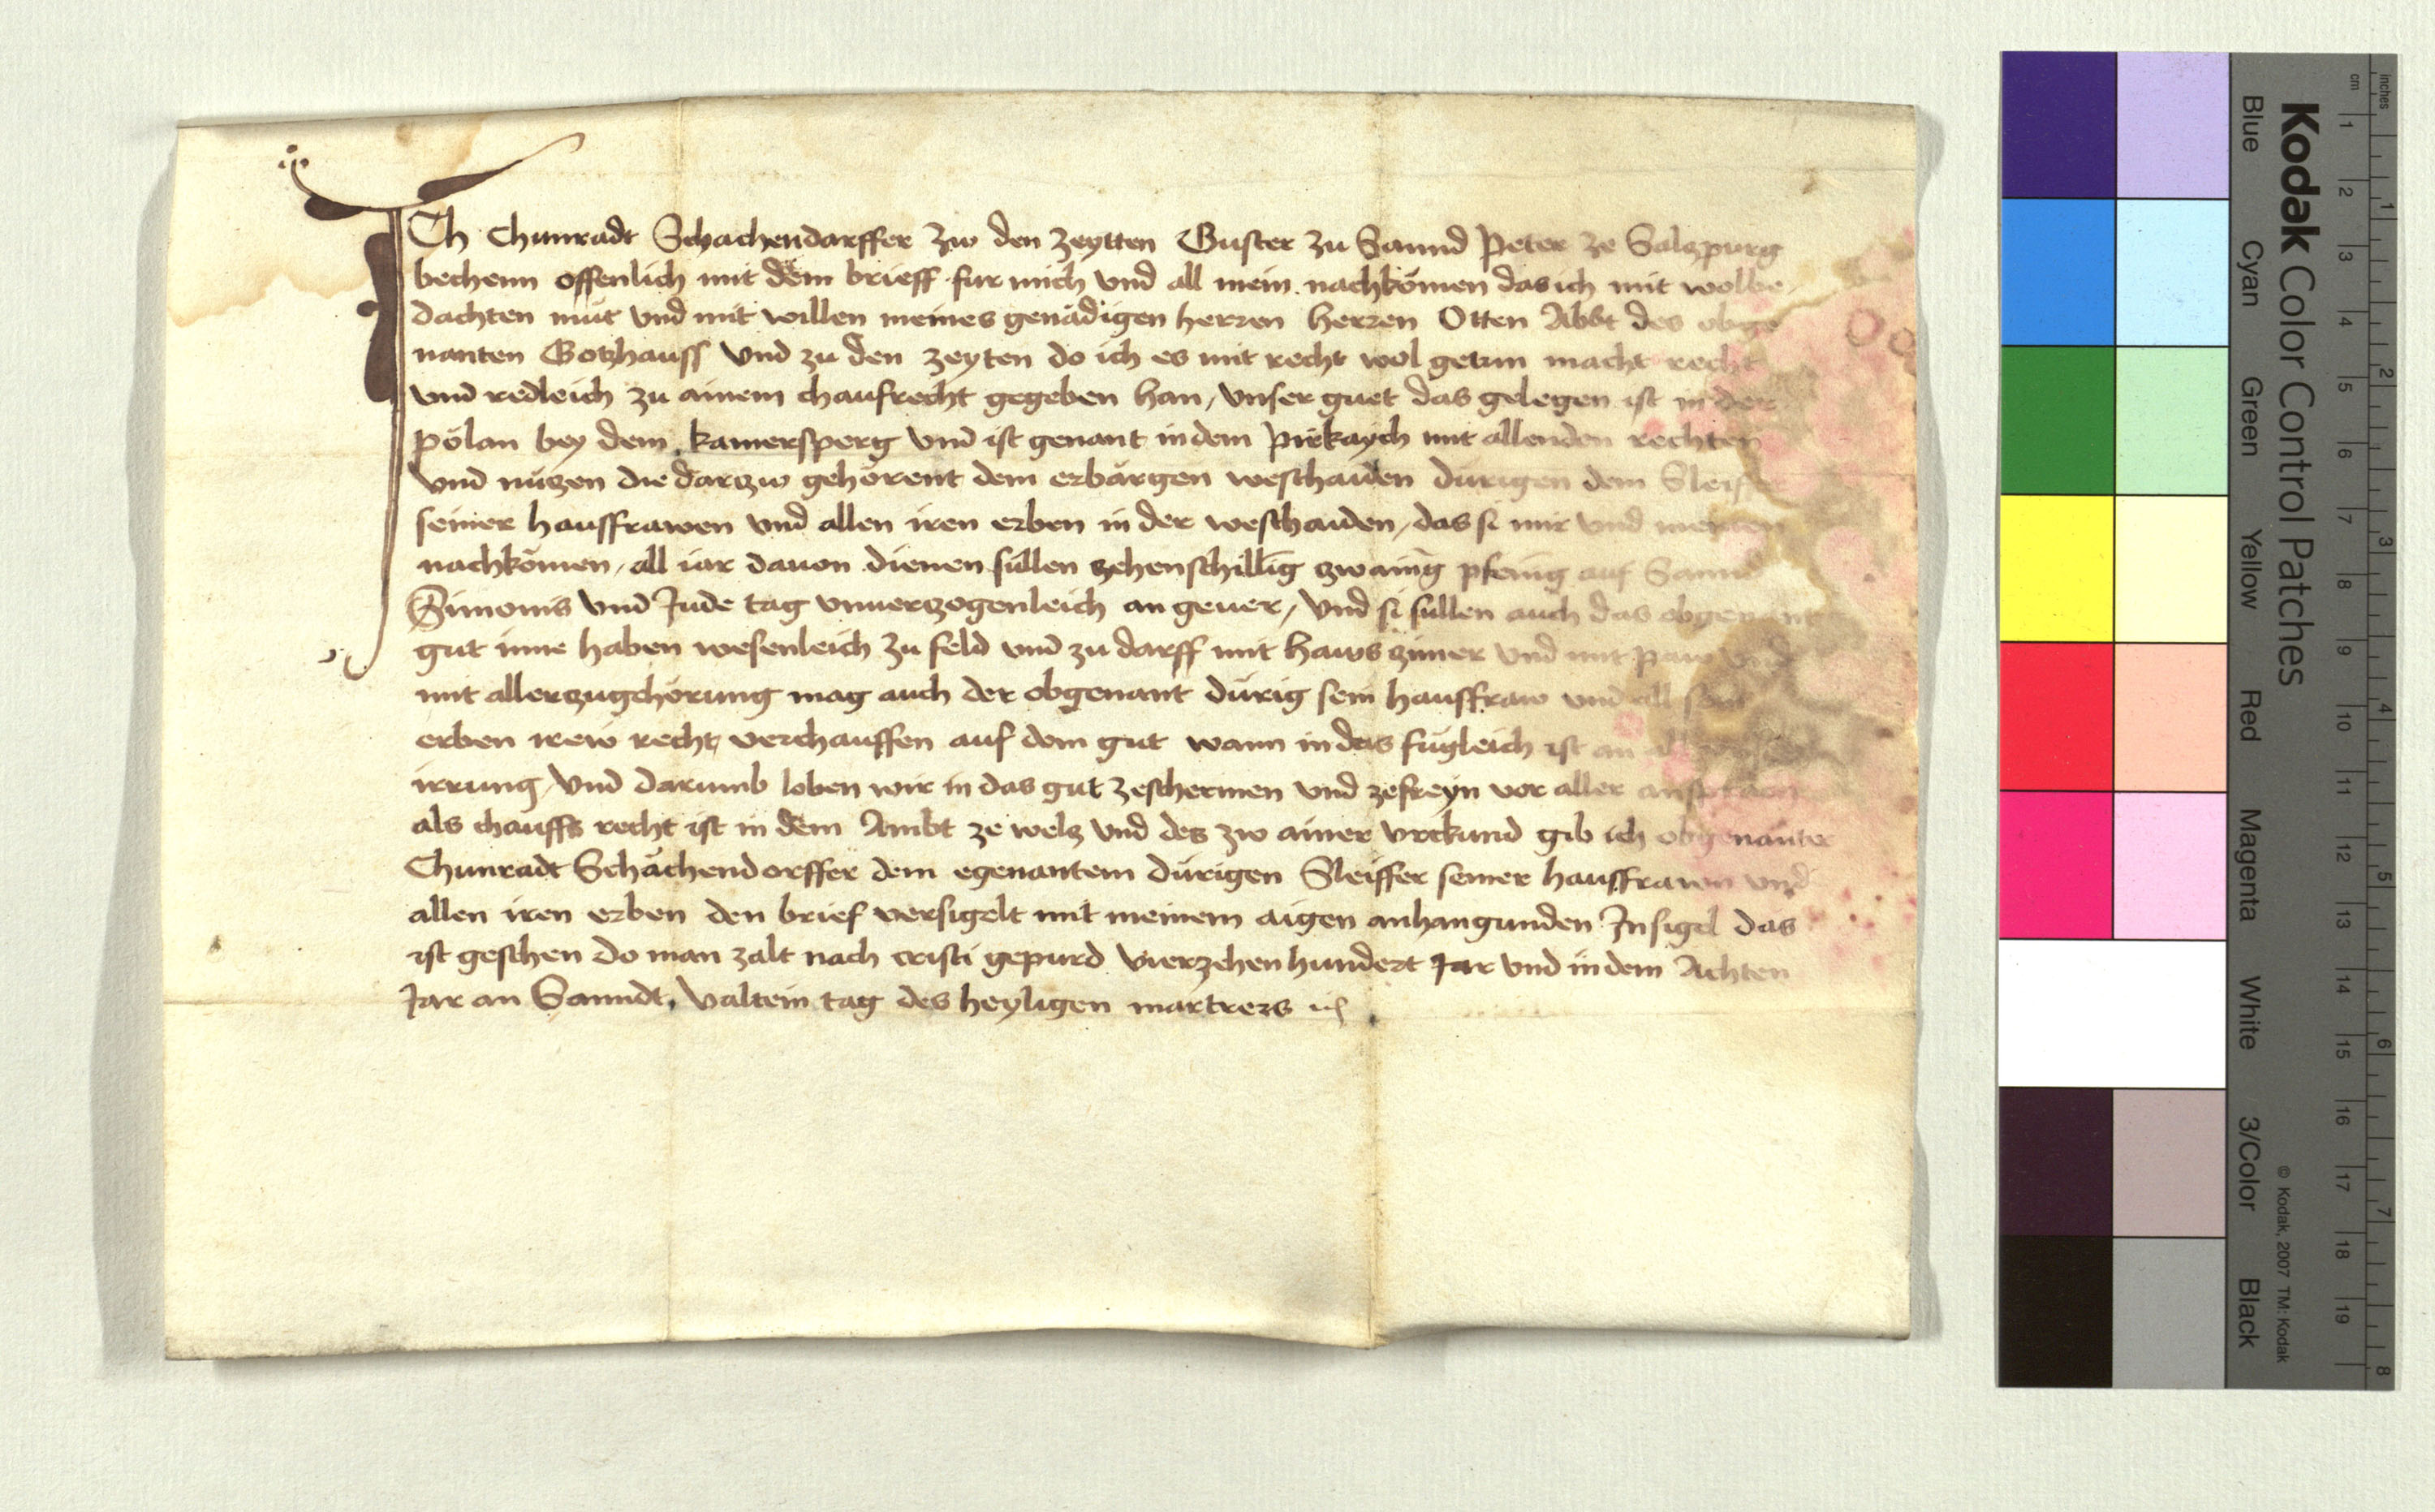 ICh Chunradt Schachendarffer zw den zeytten Guster zu Sannd Peter ze Salzpurg
bechenn offenlich mit dem brieff fur mich und all mein nachkömen das ich mit wolbe
dachten müt und mit willen meines genädigen herren herren Otten Abbt des obge
nanten Gotzhauss und zu den zeyten do ich es mit recht wol getun macht recht
und redleich zu ainem chaufrecht gegeben han, unser guet das gelegen ist in der
pölan bey dem kamersperg und ist genant in dem pirkaych mit allen den rechten
und nüzen die darzw gehörent dem erbärgen weschaiden dürigen dem
seiner hauffrawen und allen iren erben in der weschaiden, das si mir und meinen
nachkömen, all iar davon dienen süllen zehen schilling zwaing pfenig auf Sannd
Simonis und Jude tag unverzogenleich an gever, und si sullen auch das obgenant
gut inne haben wesenleich zu feld und zu darff mit haws zimer und mit paw und
mit aller zugehörung mag auch der obgenant dürig sein hauffraw und all sein
erben irew recht verchauffen auf dem gut wann in das fügleich ist an all
irrung, und darumb loben wir in das gut ze schermen und ze freyn vor aller ansprach
als chauffs recht ist in dem Ambt ze wels und des zw ainer urckund gib ich obgenanter
Chunradt Schächendorffer dem egenantem dürigen Sleiffer seiner hauffrawn und
allen iren erben den brief versigelt mit meinem aigen anhangunden Insigel das
ist geschen do man zalt nach cristi gepurd vierzehenhundert Jar und in dem Achten
Jar an Sanndt valtein tag des heyligen martrers
Kodak Color Control Patches
Blue Cyan Green Yellow Red Magenta White 3/Color Black
© Kodak, 2007 TM: Kodak
inches 1 2 3 4 5 6 7 8
cm 1 2 3 4 5 6 7 8 9 10 11 12 13 14 15 16 17 18 19